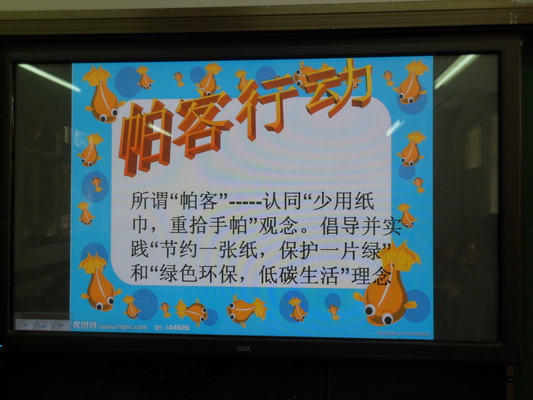 帕客行动
所谓“帕客”-----认同“少用纸
巾，重拾手帕”观念。倡导并实
践“节约一张纸，保护一片绿”
和“绿色环保，低碳生活”理念
昵图网 www.nipic.com BY:144626